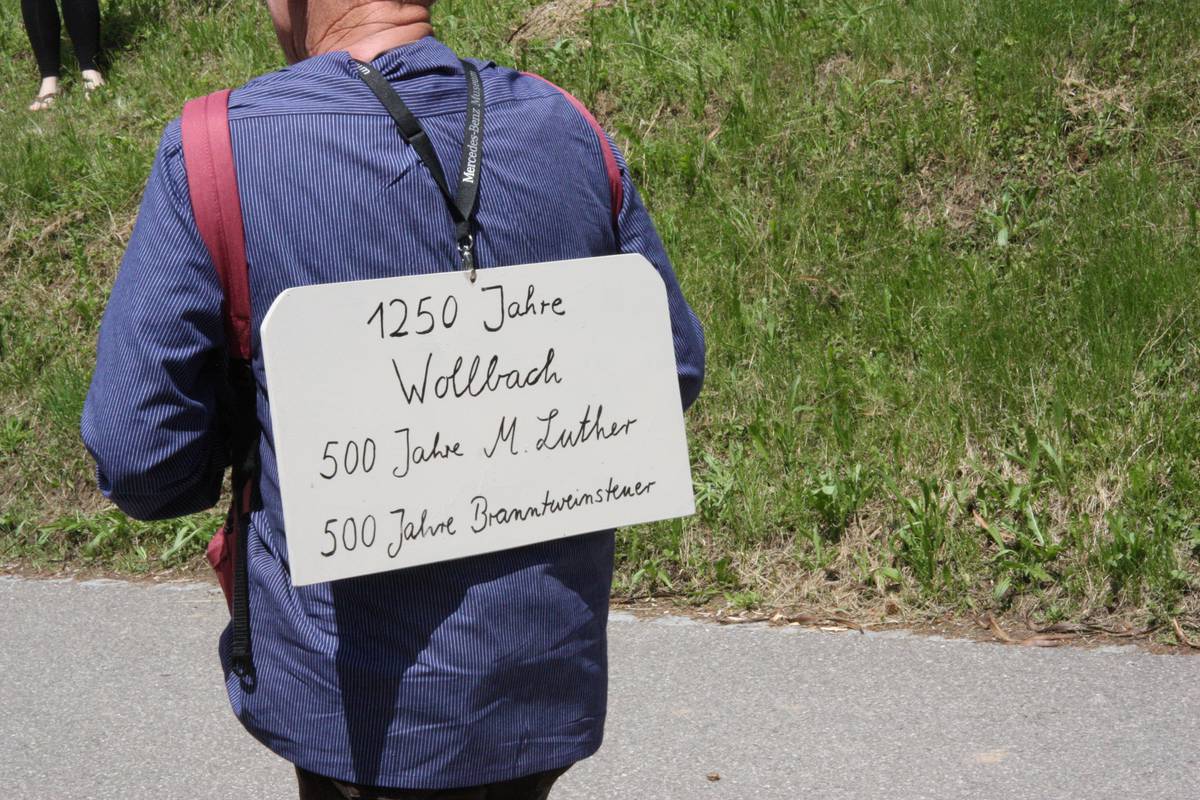 Mercedes-Benz Museum
1250 Jahre
Wollbach
500 Jahre M. Luther
500 Jahre Branntweinsteuer